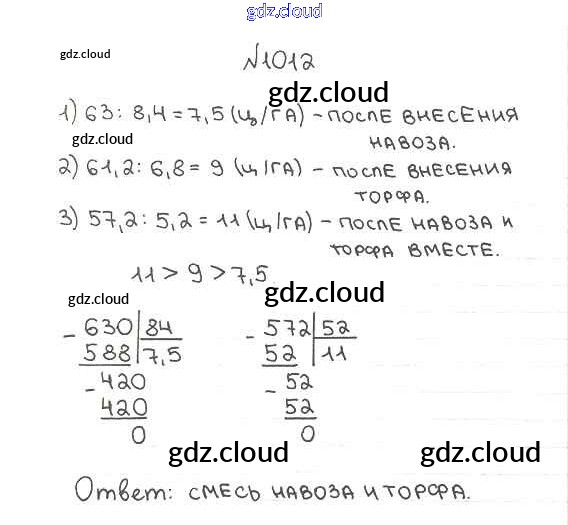 gdz.cloud
gdz.cloud
№1012
gdz.cloud
1) 63 : 8,4 = 7,5 (ц/га) – после внесения
gdz.cloud
навоза.
2) 61,2 : 6,8 = 9 (ц/га) – после внесения
торфа.
3) 57,2 : 5,2 = 11 (ц/га) – после навоза и
gdz.cloud
торфа вместе.
11 > 9 > 7,5
gdz.cloud
gdz.cloud
- 630 84
588 7,5
- 420
420
0
- 572 52
52 11
- 52
52
0
gdz.cloud
gdz.cloud
Ответ: смесь навоза и торфа.